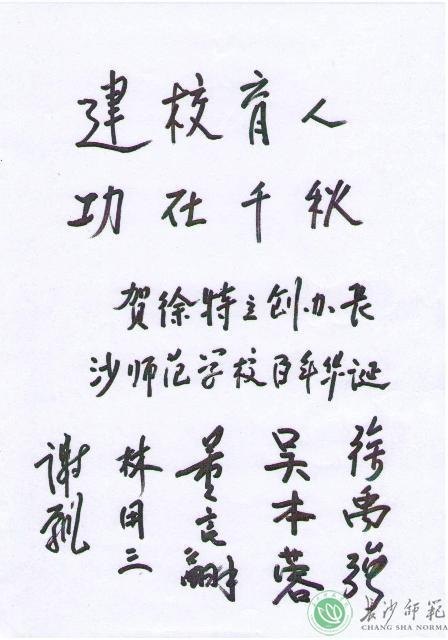 建校育人
功在千秋
贺徐特立创办长
沙师范学校百年华诞
徐禹强
吴本蓉
林用三
谢飘
長沙師範
CHANG SHA NORMA